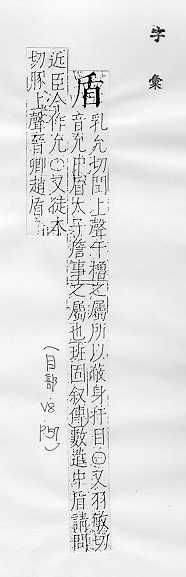 字彙
盾
乳允切閏上聲干櫓之屬所以蔽身扞目〇又羽敏切
音允中盾太子詹事之屬也班固敘傳數遣中盾請問
近臣今作允〇又徒本
切豚上聲晉卿趙盾
(目部.V8.P57)